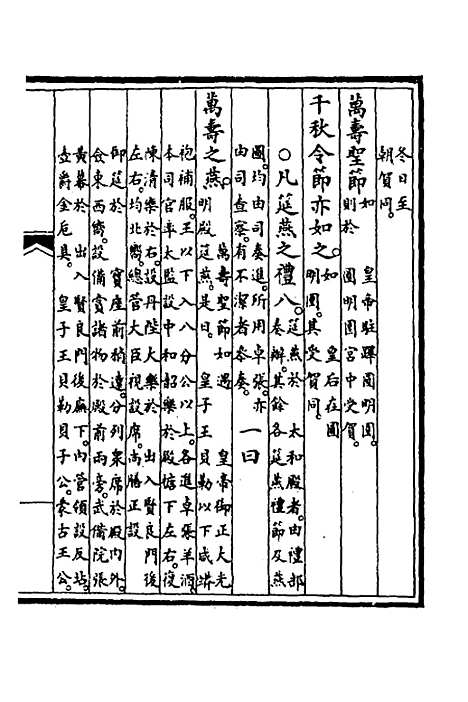 冬日至
朝賀同。
萬壽聖節。如 皇帝駐蹕圓明園。
則於 圓明園宮中受賀。
千秋令節亦如之。如 皇后在圓
明園。其受賀同。
○凡筵燕之禮八。筵燕於 太和殿者。由禮部
奏辦。其餘各筵燕禮節及燕
圖。均由司奏進。所用卓張。亦
由司查察。有不潔者參奏。一曰
萬壽之燕。萬壽聖節如遇 皇帝御正大光
明殿筵燕。是日。皇子王貝勒以下咸蟒
袍補服。王以下入八分公以上。各進卓張羊酒。
本司官率太監設中和韶樂於殿檐下左右。復
陳清樂於右。設丹陛大樂於 出入賢良門後
左右。均北嚮。總管大臣視設席。尚膳正設
御筵於 寶座前。稍遠。分列衆席於殿內外。
僉東西嚮。設備賞諸物於殿前兩旁。武備院張
黃幕於 出入賢良門後廡下。內管領設反坫。
壺爵金卮具。皇子王貝勒貝子公。蒙古王公。